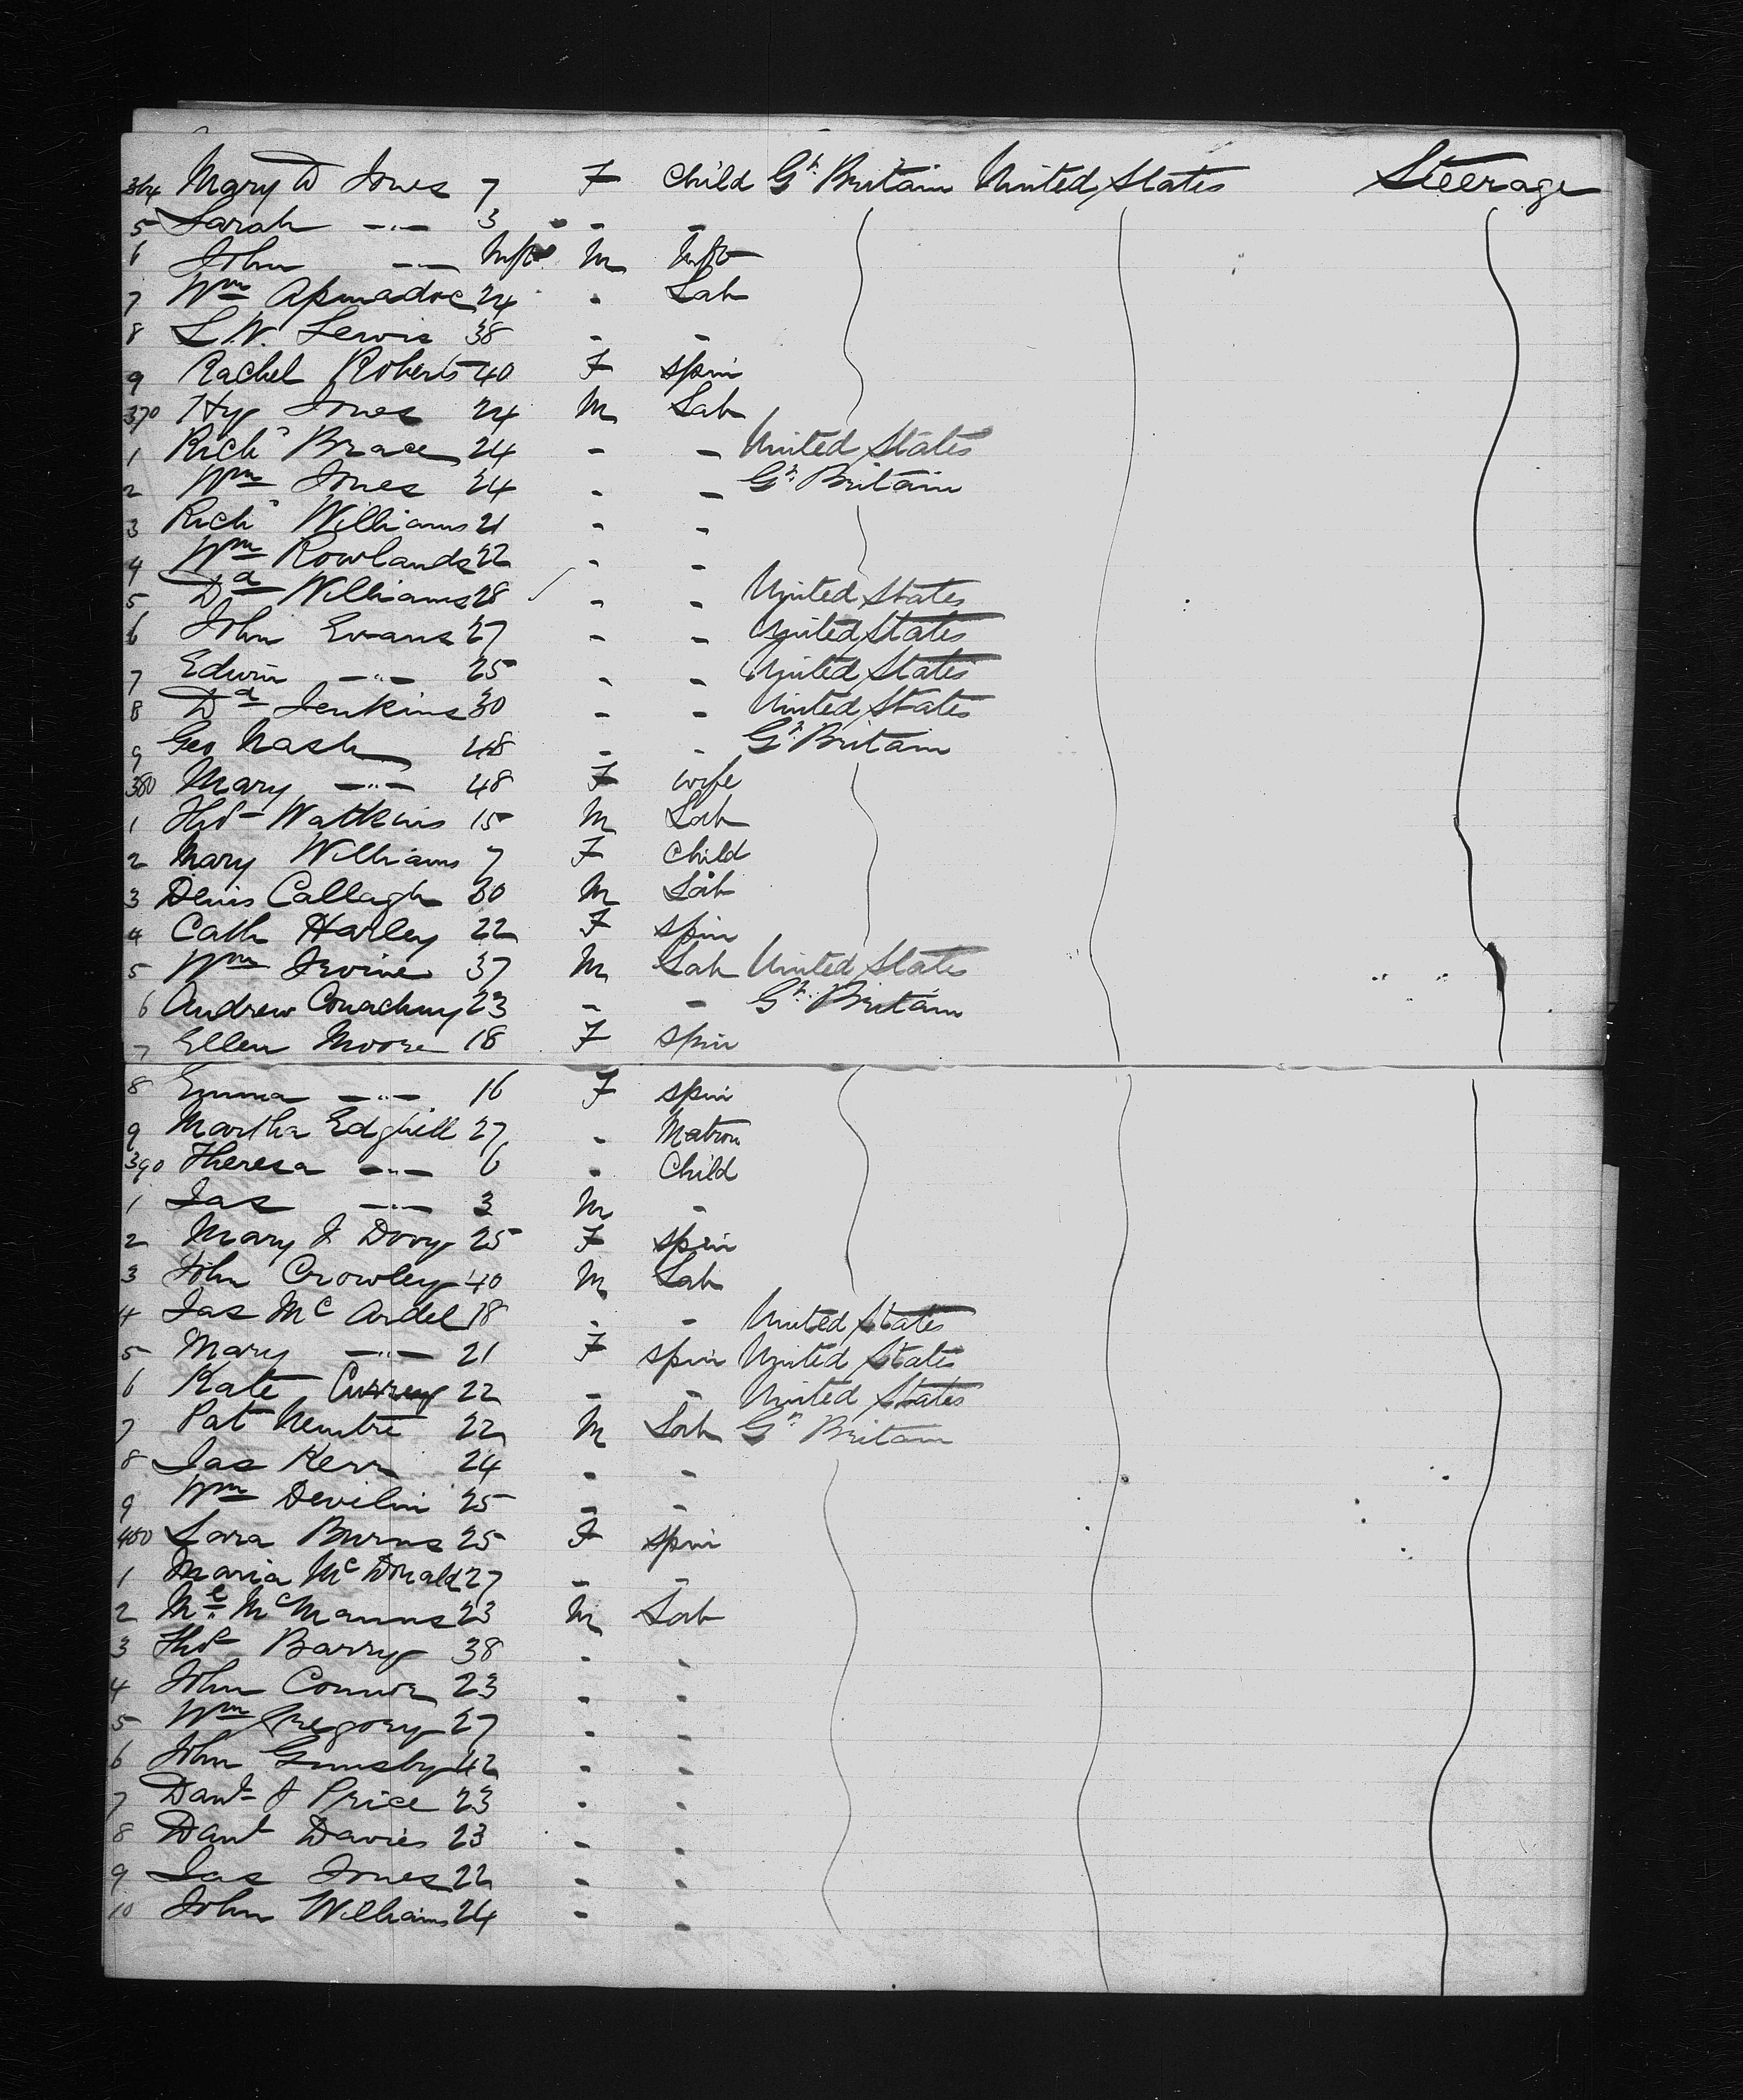 364 Mary D Jones 7 F Child Gt. Britain United States Steerage
5 Sarah -"- 3 - -
6 John -"- Inft M Inft
7 Wm Apmadoc 24 - Lab
8 L.W. Lewis 38 - -
9 Rachel Roberts 40 F spin
370 Hy Jones 24 M Lab
1 Richd Brace 24 - - United States
2 Wm Jones 24 - - Gt. Britain
3 Richd Williams 21 - -
4 Wm Rowlands 22 - -
5 Dd Williams 28 - - United States
6 John Evans 27 - - United States
7 Edwin -"- 25 - - United States
8 Dd Jenkins 30 - - United States
9 Geo Nash 48 - - Gt. Britain
380 Mary -"- 48 F wife
1 Thos Watkins 15 M Lab
2 Mary Williams 7 F Child
3 Denis Callagh 30 M Lab
4 Cath Harley 22 F spin
5 Wm Irvine 37 M Lab United States
6 Andrew 23 - - Gt. Britain
7 Ellen Moore 18 F spin
8 Emma -"- 16 F spin
9 Martha Edghill 27 - Matron
390 Theresa -"- 6 - Child
1 Jas -"- 3 M -
2 Mary J 25 F spin
3 John Crowley 40 M Lab
4 Jas Mc Ardel 18 - - United States
5 Mary -"- 21 F spin United States
6 Kate Currey 22 - - United States
7 Pat 22 M Lab Gt. Britain
8 Jas Kerr 24 - -
9 Wm Devilin 25 - -
400 Sara Burns 25 F spin
1 Maria McDonald 27 - -
2 Ml McManus 23 M Lab
3 Thos Barry 38 - -
4 John Connor 23 - -
5 Wm Gregory 27 - -
6 John 42 - -
7 Danl J Price 23 - -
8 Danl Davies 23 - -
9 Jas Jones 22 - -
10 John Williams 24 - -